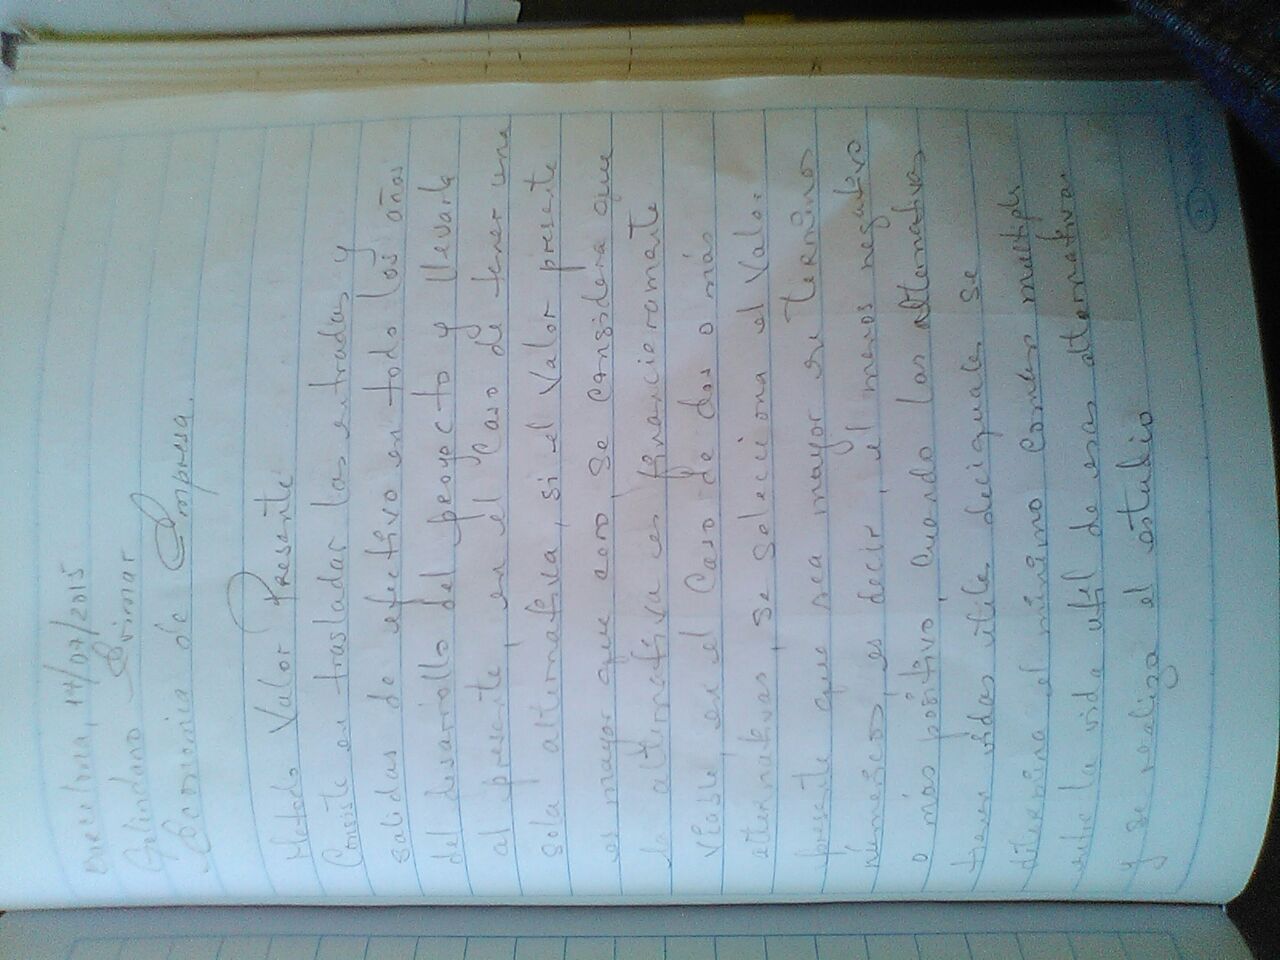 Barcelona, 14/07/2015
Galindano
Economica de Empresa.
Metodo Valor Presente
Consiste en trasladar las entradas y
salidas de efectivo en todo los años
del desarrollo del proyecto y llevarla
al presente, en el Caso de tener una
sola alternativa, si el Valor presente
es mayor que cero se considera que
la alternativa es financieramente
Viable en el Caso de dos o más
alternativas, se seleciona el Valor
presente que sea mayor en terminos
númericos, es decir, el menos negativo
o más positivo, cuando las alternativas
tienen vidas utiles desiguales se
ditermina el mínimo común multiplo
entre la vida util de esas alternativas
y se realiza el estudio